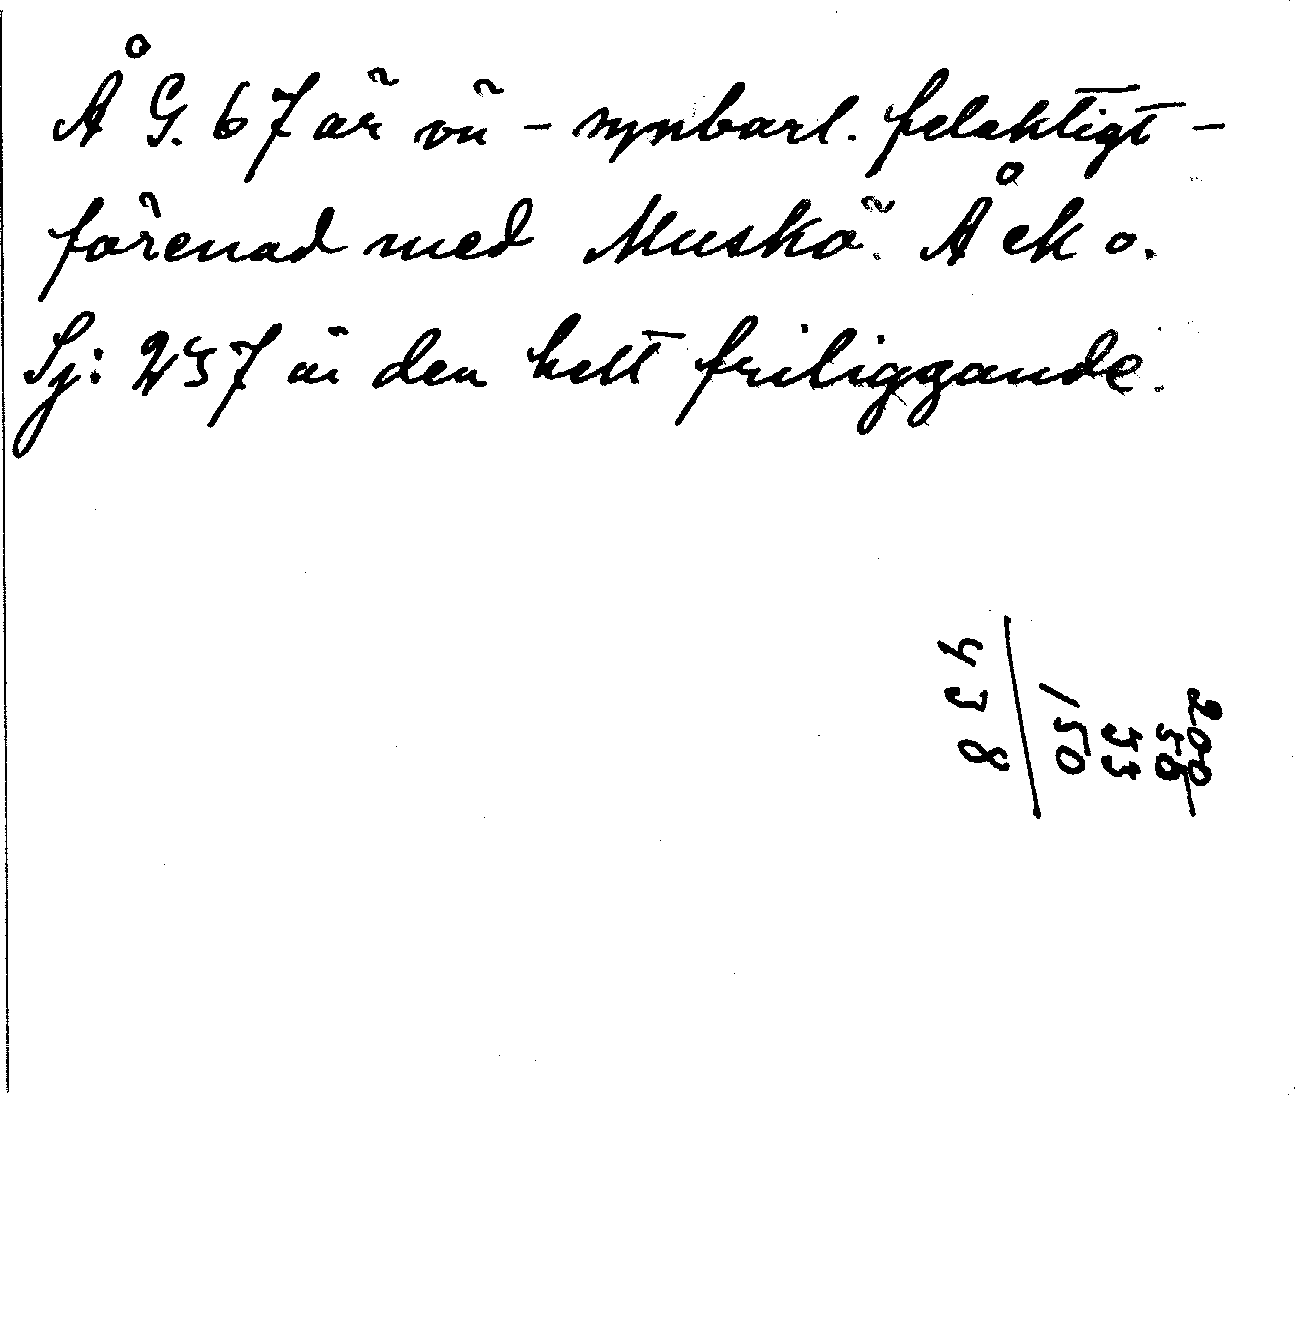 Å G. 67 är ön - synbarl. felaktigt -
förenad med Muskö. Å ek o.
Sj: 257 är den helt friliggande.
200
50
33
150
438